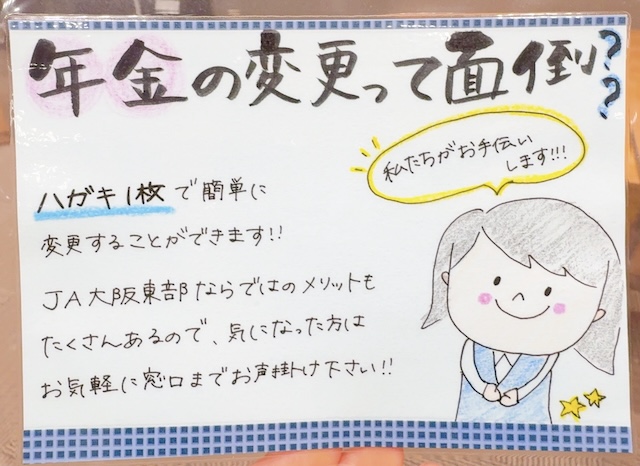 年金の変更って面倒??
私たちがお手伝い
します!!!
ハガキ1枚で簡単に
変更することができます!!
JA大阪東部ならではのメリットも
たくさんあるので、気になった方は
お気軽に窓口までお声掛け下さい!!